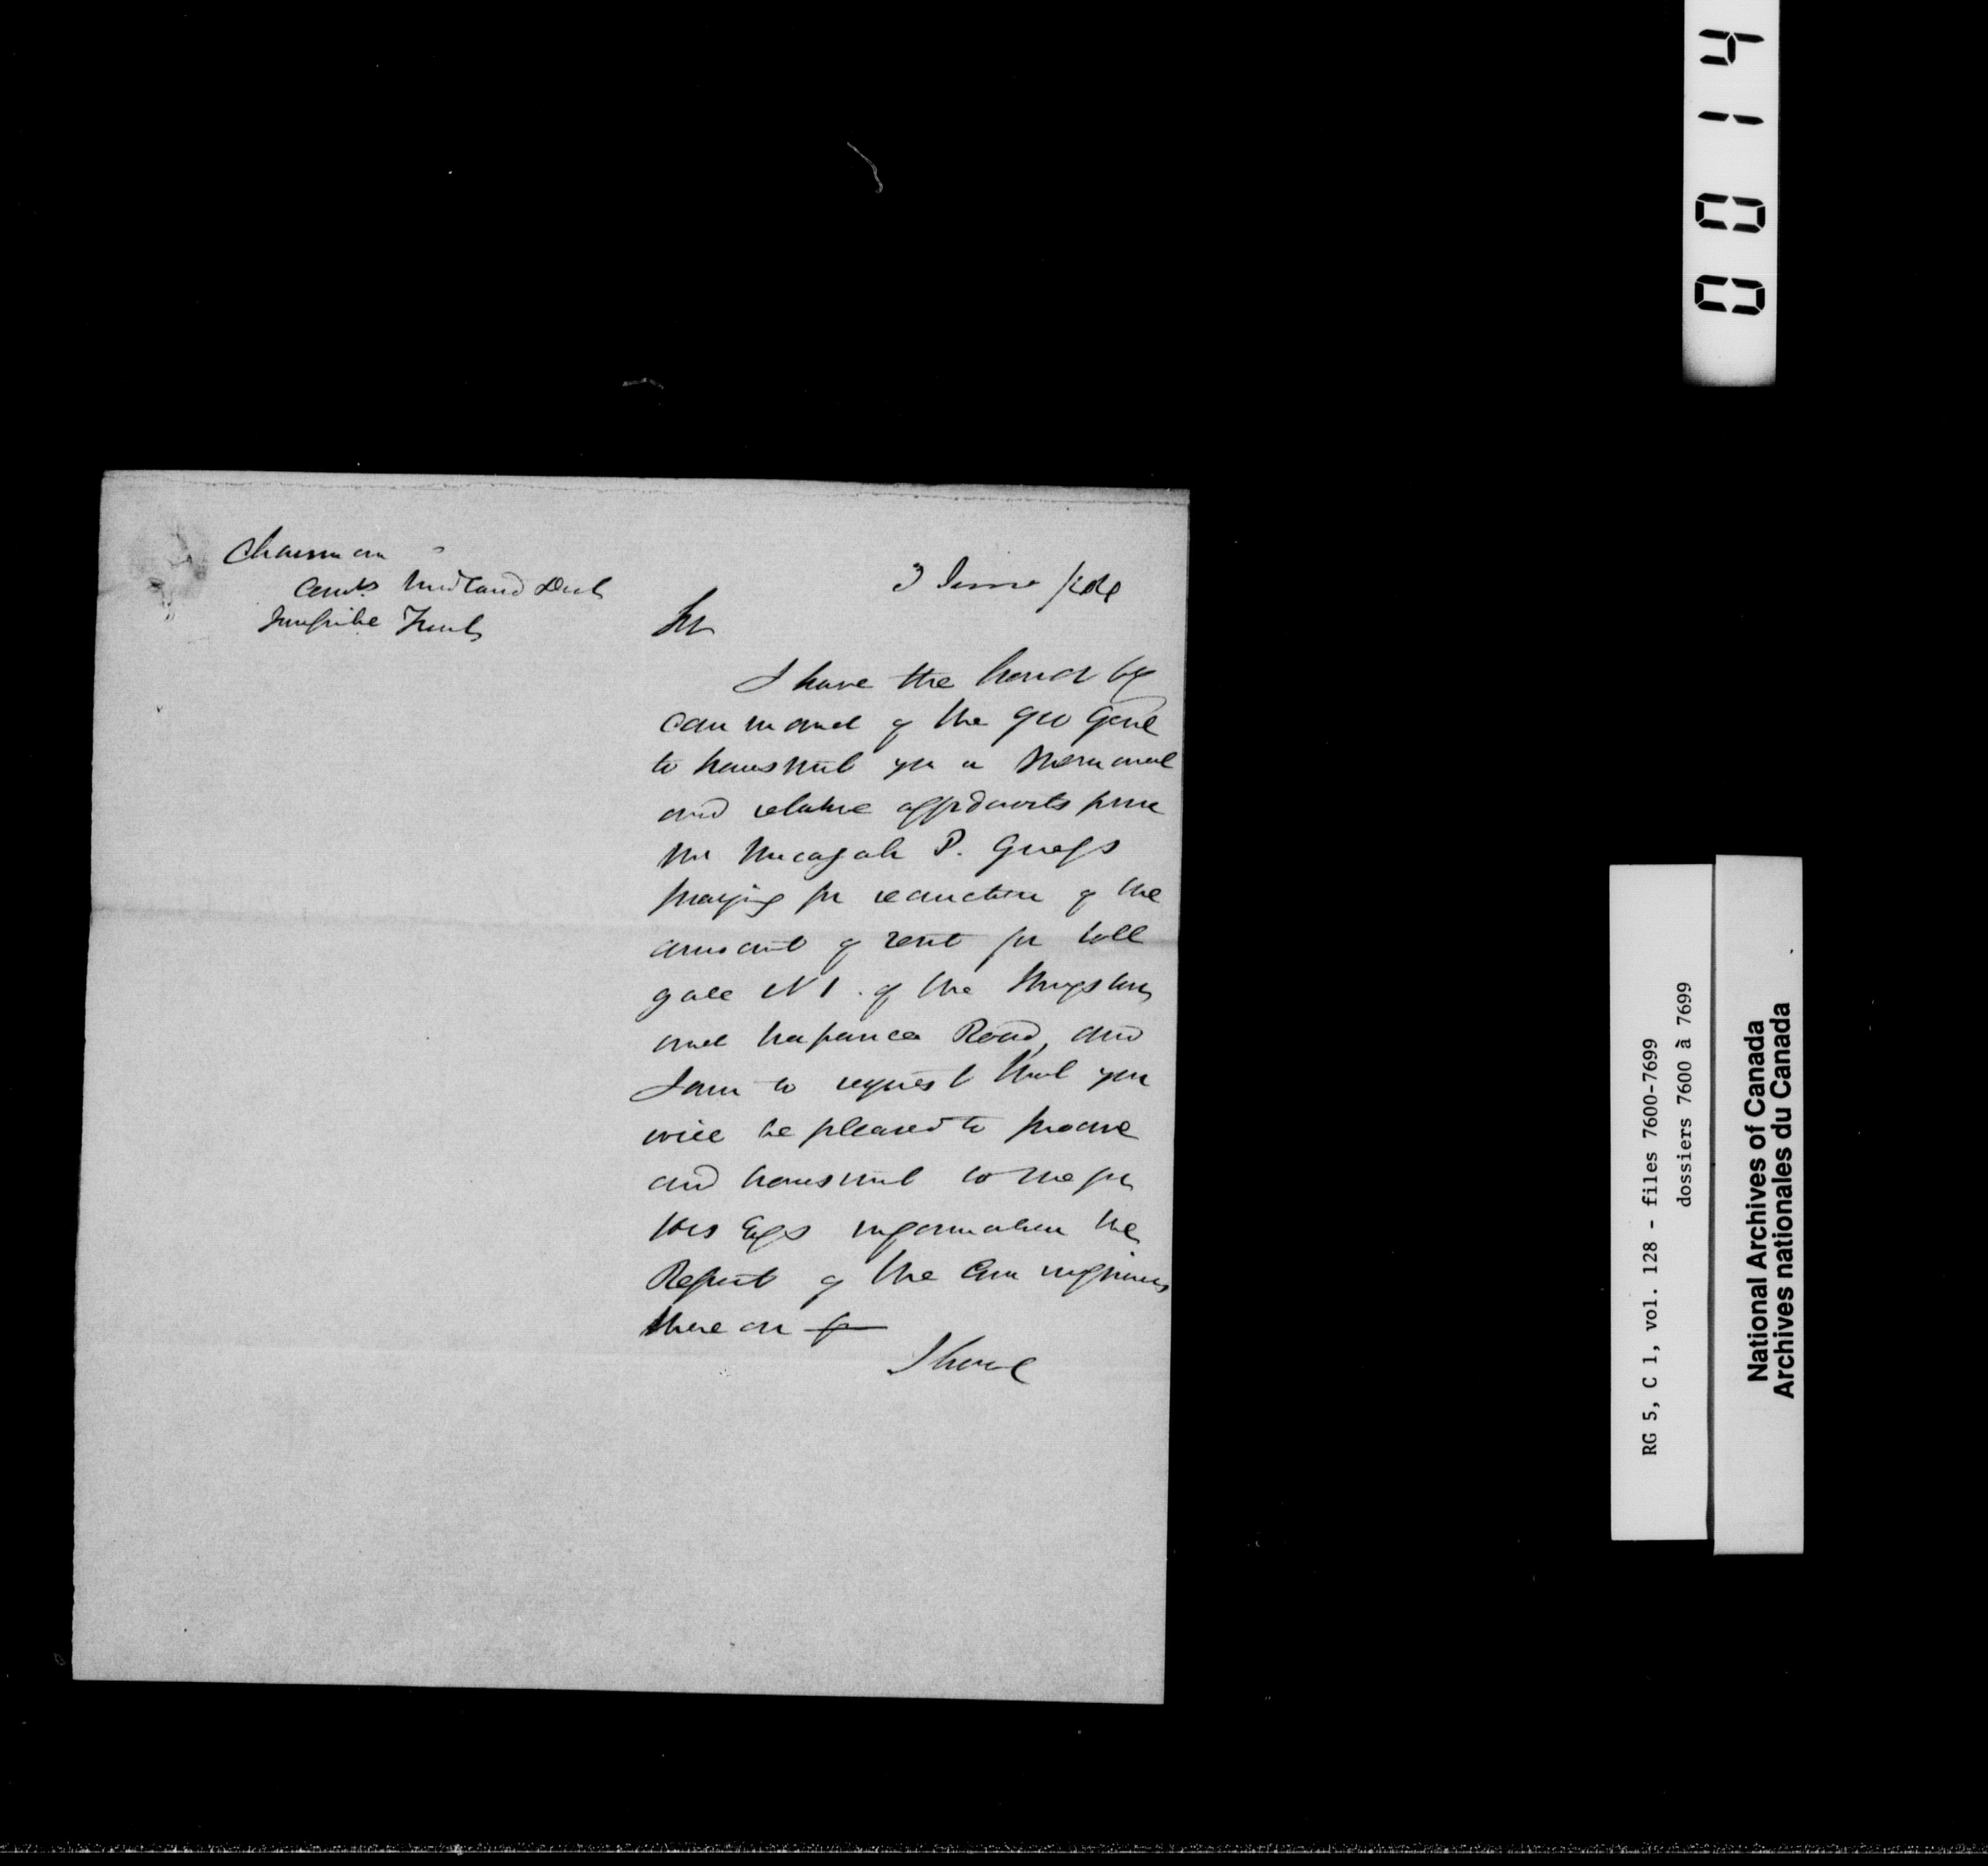 Chairman
Comrs Midland Dist
Turnpike Trust
3 June /44
Sir
I have the honor by
command of the Gov Genl
to transmit you a Memorial
and relative affidavits from
Mr Micajah P.
praying for reduction of the
amount of rent for toll
gate N 1. of the Kingston
and Napanee Road, and
I am to request that you
will be pleased to procure
and transmit to me for
His Exys information the
Report of the Commissioners
there on
I have
0014
RG 5, C 1, vol. 128 - files 7600-7699
dossiers 7600 à 7699
National Archives of Canada
Archives nationales du Canada